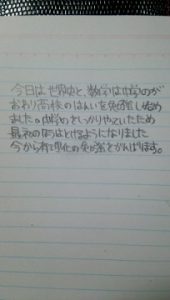 今日は世界史と、数学は中学のが
おわり高校のはんいを勉強し始め
ました。中学をしっかりやっていたため
最初の方はとけるようになりました
今から有機化の勉強をがんばります。